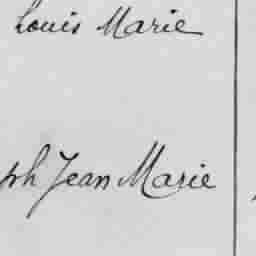 Louis Marie
ph Jean Marie